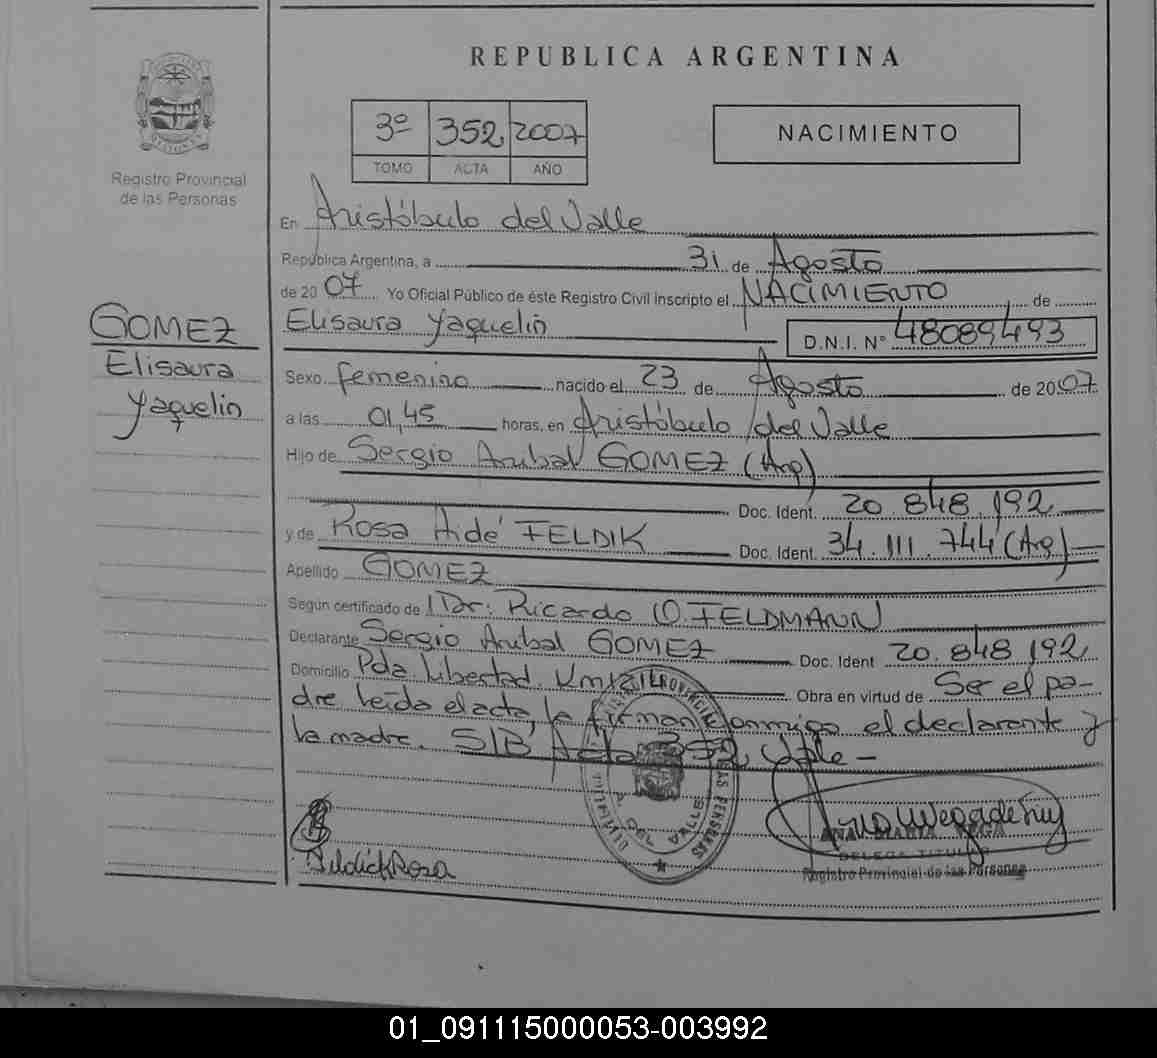 REPUBLICA ARGENTINA
3º 352 2007
TOMO ACTA AÑO
NACIMIENTO
Registro Provincial
de las Personas
En Aristóbulo del Valle
República Argentina, a 31 de Agosto
de 2007 Yo Oficial Público de éste Registro Civil inscripto el NACIMIENTO de
Elisaura Yaquelin D.N.I. Nº 48089493
GOMEZ
Elisaura
Yaquelin
Sexo femenino nacido el 23 de Agosto de 2007
a las 01,45 horas, en Aristóbulo del Valle
Hijo de Sergio Anibal GOMEZ (Arg)
Doc. Ident. 20.848.192
y de Rosa Aidé FELDIK Doc. Ident. 34.111.744 (Arg)
Apellido GOMEZ
Según certificado de Dr: Ricardo O. FELDMANN
Declarante Sergio Anibal GOMEZ Doc. Ident 20.848.192
Domicilio Pda. Libertad Km Obra en virtud de Ser el pa-
dre leída el acta, la firman conmigo el declarante y
la madre. S/B Acta 352 Vale -
A. DEL VALLE
ANA MARIA VEGA
DELEGA TITULAR
Registro Provincial de las Personas
Feldich Rosa
01_091115000053-003992